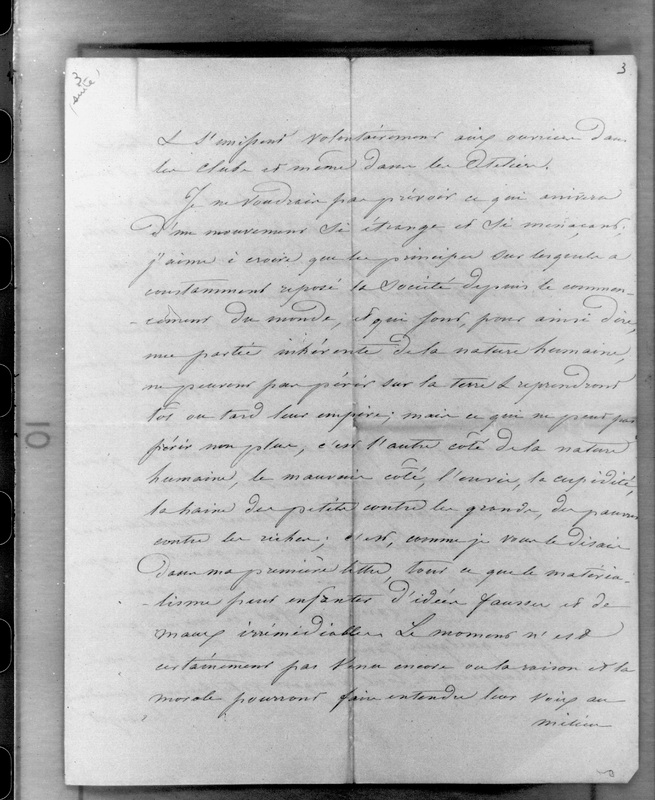 3
(suite)
3
& s'unissent volontairement aux ouvriers dans
les clubs et même dans les Ateliers.
Je ne voudrais pas prévoir ce qui arrivera
d'un mouvement si étrange et si menaçant;
j'aime à croire que les principes sur lesquels a
constamment reposé la Société depuis le commen-
-cement du monde, et qui sont, pour ainsi dire,
une partie inhérente de la nature humaine,
ne peuvent pas périr sur la terre & reprendront
tôt ou tard leur empire; mais ce qui ne peut pas
périr non plus, c'est l'autre côté de la nature
humaine, le mauvais côté, l'envie, la cupidité,
la haine des petits contre les grands, des pauvres
contre les riches; c'est, comme je vous le disais
dans ma première lettre, tout ce que le matéria-
-lisme peut enfanter d'idées fausses et de
maux irrémédiables. Le moment n'est
certainement pas venu encore ou la raison et la
morale pourront faire entendre leur voix au
milieu
10